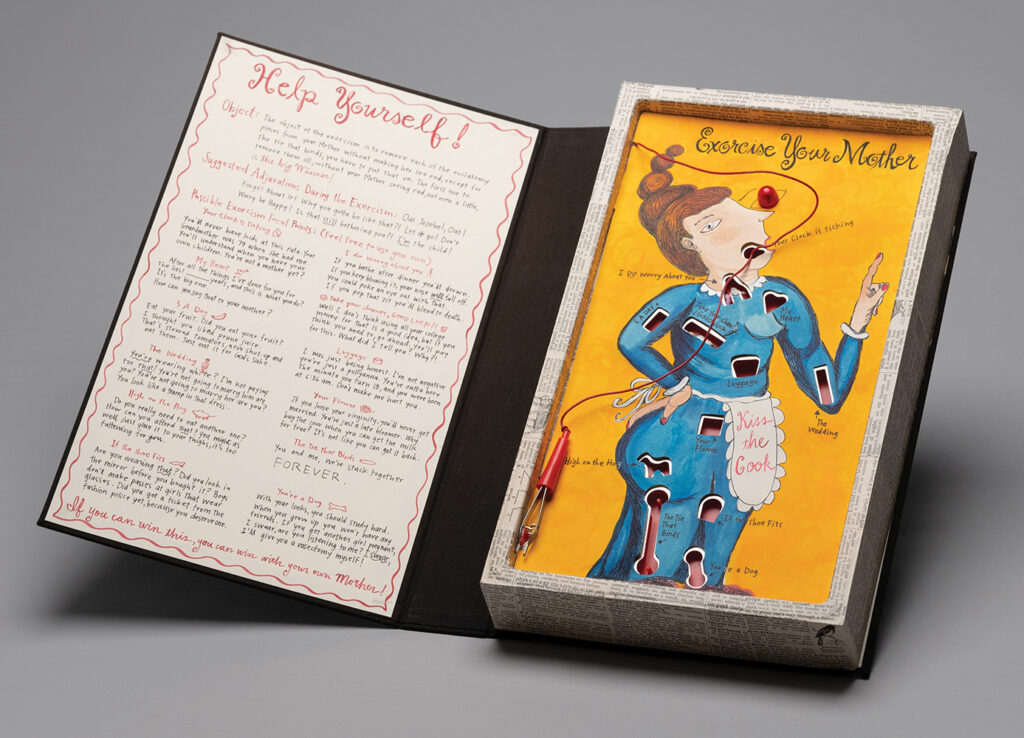 Help Yourself!
Object: The object of the exorcism is to remove each of the evilatomy
pieces from your Mother without making her see red, except for
the tie that binds; you have to put that on. The first one to
remove them all, without your Mother seeing red, not even a little,
is the big Winner!
Suggested Adjurations During the Exorcism: Out Jezebel, Out!
Forget About it! Why you gotta be like that?! Let it go! Don't
Worry be Happy! Is that Still bothering you?! I'm the child!
Possible Exorcism Focal Points: (feel free to use your own)
Your Clock is Ticking
You'd never have kids at this rate. Your
Grandmother was 79 when she had me.
You'll understand when you have your
own children. You're not a mother yet?
My Heart
After all the things I've done for you for
the last years, and this is what you do?
It's the big one.
How can you say that to your mother?
5 A Day
Eat your fruit. Did you eat your fruit?
I thought you liked prune juice.
That's stewed tomatoes, now shut up and
eat them. Just eat it for God's sake
The Wedding
You're wearing white? I'm not paying
for that! You're not going to marry him are
you? You're not going to marry her are you?
You look like a tramp in that dress.
High on the Hog
Do you really need to eat another one?
How can you afford that? You might as
well just glue it to your thighs, it's too
fattening for you.
If the Shoe Fits
Are you wearing that? Did you look in
the mirror before you bought it? Boys
don't make passes at girls that wear
glasses. Did you get a ticket from the
fashion police yet, because you deserve one.
I do worry about you
If you bathe after dinner you'll drown.
If you keep blowing it, your nose will fall off.
You could poke an eye out with that.
If you pop that zit you'll bleed to death.
Take your chances, Good luck!!
Well I don't think using all your college
money for that is a good idea, but if you
think you need to, go ahead, you'll pay
for this. What did I tell you? Why?
Luggage
I was just being honest. I'm not negative
you're just a pollyanna. You're outta here
the minute you turn 18, and you were born
at 6:36 am. Don't make me hurt you
Your Flower
If you lose your virginity, you'll never get
married. You're just a late bloomer. Why
buy the cow when you can get the milk
for free? It's not like you can get it back.
The Tie that Binds
You and me, we're stuck together
FOREVER.
You're a Dog
With your looks, you should study hard.
When you grow up you won't have any
friends. If you get another girl pregnant,
I swear, are you listening to me? I swear,
I'd give you a vasectomy myself!
If you can win this, you can win with your own Mother!
Exorcise Your Mother
Your Clock is ticking
I Do Worry About You
5 A Day
My Heart
Luggage
The Wedding
Kiss the Cook
Your Flower
High on the Hog
The Tie That Binds
If the Shoe Fits
You're a Dog